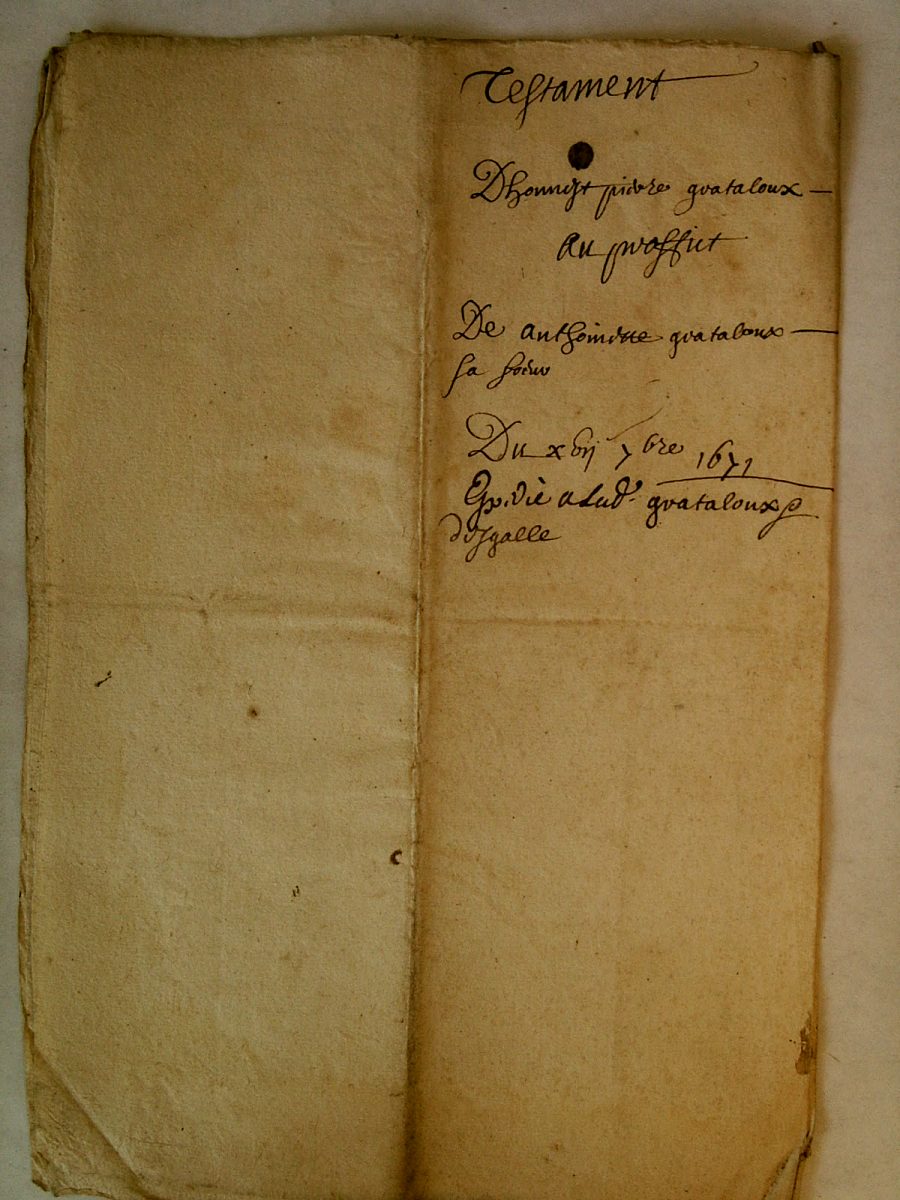 Testament
Dhonneste pierre grataloux
Au proffict
De anthoinette grataloux
sa soeur
Du xvij 7bre 1671
Expédié a Lud. grataloux